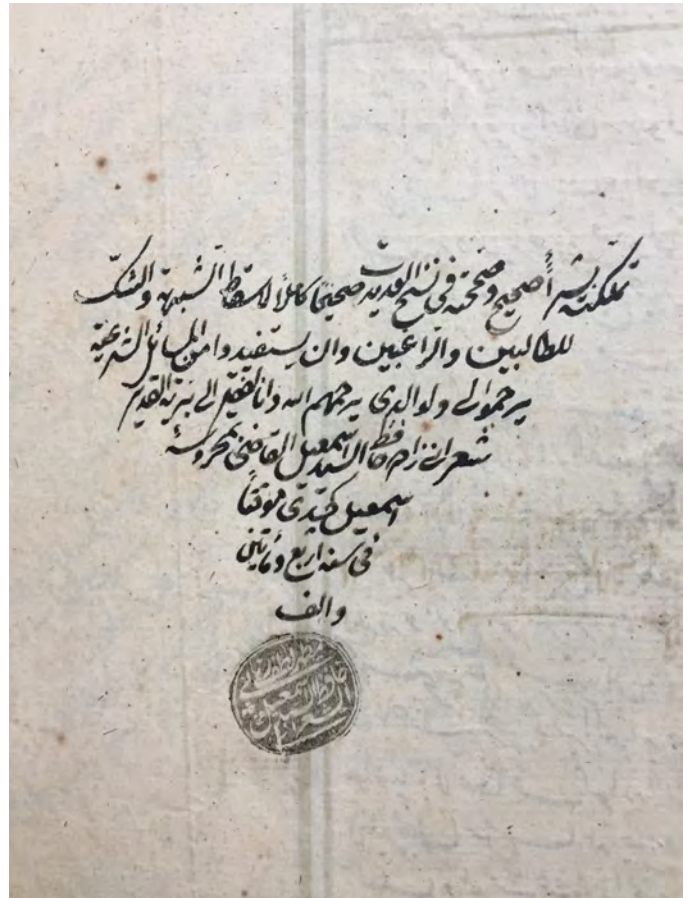 تملكته بشراء صحيح وصححته في نسخ العديدة صحيحًا كاملًا لاسقاط الشبهة والشك
للطالبين والراغبين وان يستفيدوا من المسائل الشرعية
يرحموا لي ولوالدي يرحمهم الله وانا الفقير الى ربه القدير
زاده حافظ السيد اسمعيل القاضي بمحروسة
اسمعيل كچيدى موقتًا
في سنة اربع ومأتين
والف